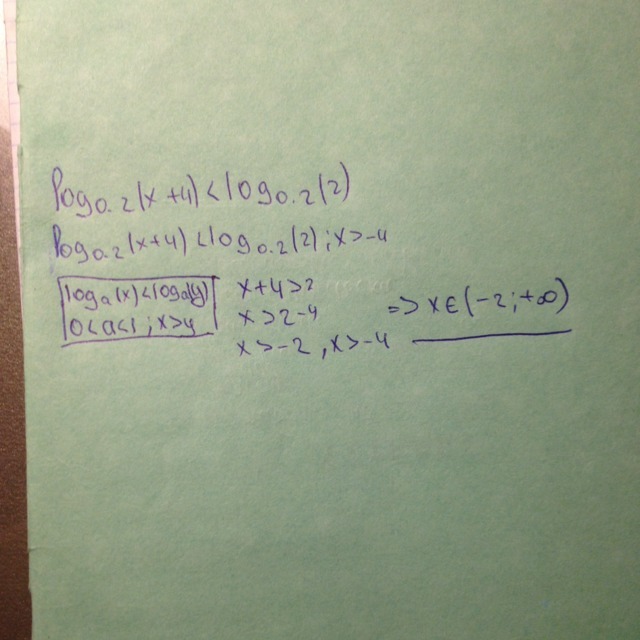 log₀.₂(x+4)<log₀.₂(2)
log₀.₂(x+4)<log₀.₂(2);x>-4
logₐ(x)<logₐ(y)
0<a<1;x>y
x+4>2
x>2-4
x>-2,x>-4
=>x∈(-2;+∞)